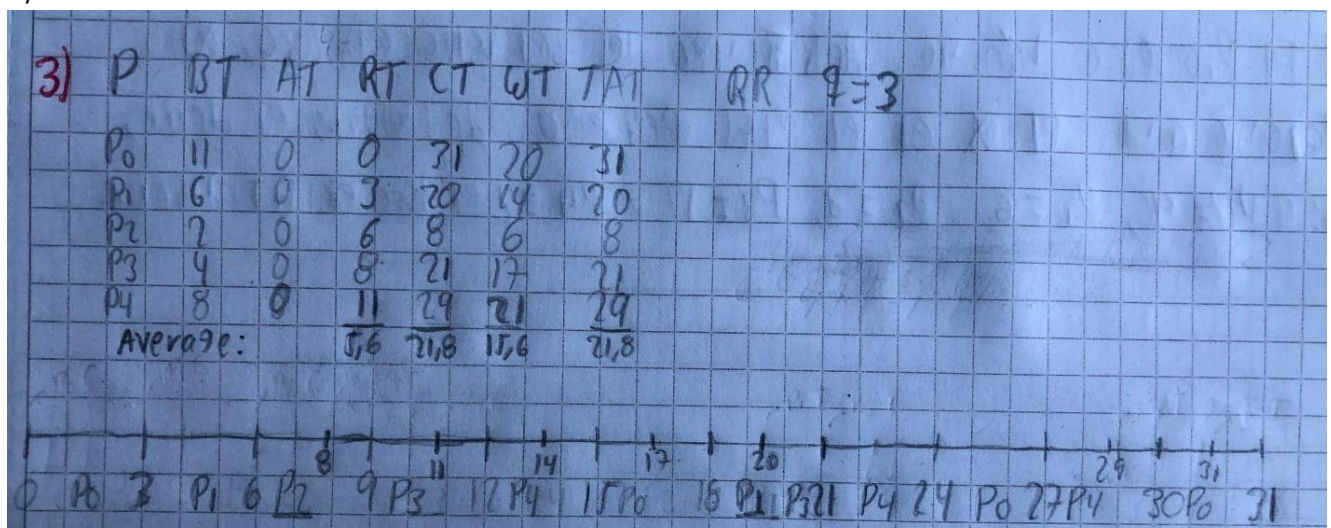 3) P BT AT RT CT WT TAT RR q=3
P0 11 0 0 31 20 31
P1 6 0 3 20 14 20
P2 2 0 6 8 6 8
P3 4 0 8 21 17 21
P4 8 0 11 29 21 29
Average: 5,6 21,8 15,6 21,8
8 11 14 17 20 29 31
0 P0 3 P1 6 P2 9 P3 12 P4 15 P0 18 P1 P3 21 P4 24 P0 27 P4 30 P0 31